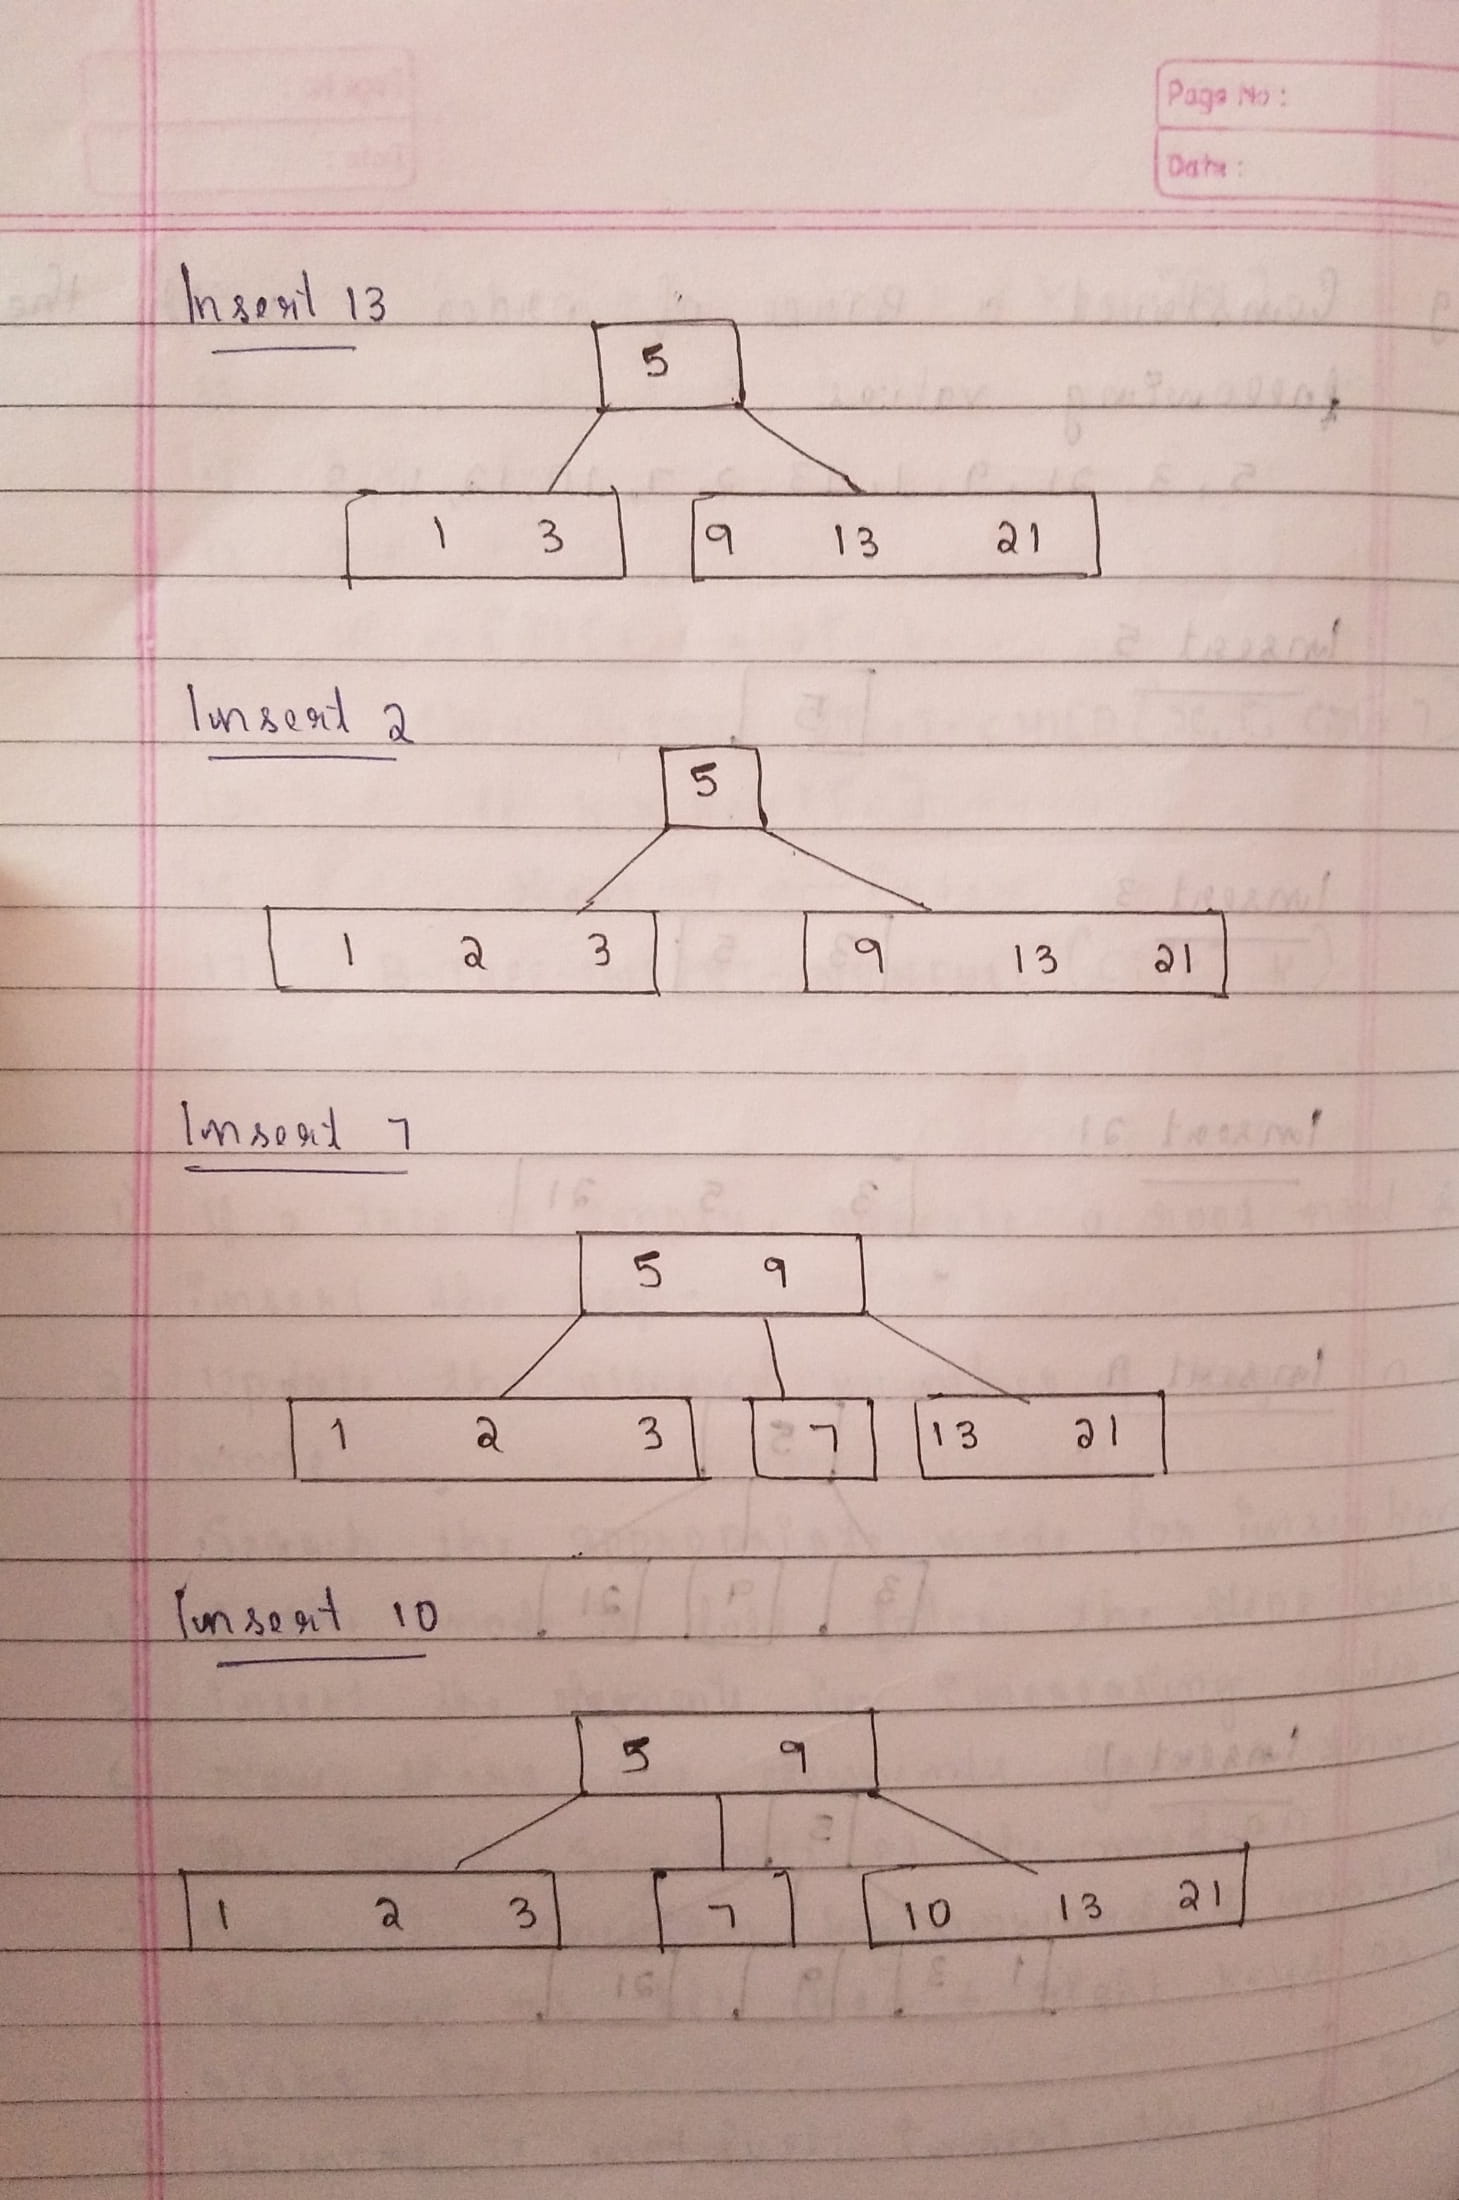 Page No :
Date :
Insert 13
5
1 3 9 13 21
Insert 2
5
1 2 3 9 13 21
Insert 7
5 9
1 2 3 7 13 21
Insert 10
5 9
1 2 3 7 10 13 21